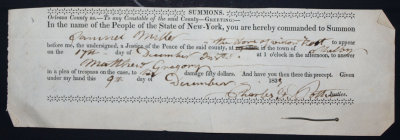 SUMMONS.
Orleans County ss.—To any Constable of the said County—GREETING:
In the name of the People of the State of New-York, you are hereby commanded to Summon
Samuel to appear
before me, the undersigned, a Justice of the Peace of the said county, at in the town of
on the 17th day of December inst. at 1 o'clock in the afternoon, to answer
Matthew Gregory
in a plea of trespass on the case, to his damage fifty dollars. And have you then there this precept. Given
under my hand this 9th day of December 183
Charles Justice.